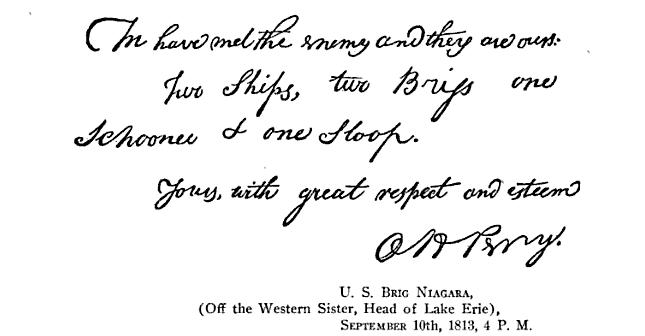 We have met the enemy and they are ours:
Two Ships, two Brigs one
Schooner & one Sloop.
Yours, with great respect and esteem
O H Perry.
U. S. Brig Niagara,
(Off the Western Sister, Head of Lake Erie),
September 10th, 1813, 4 P. M.